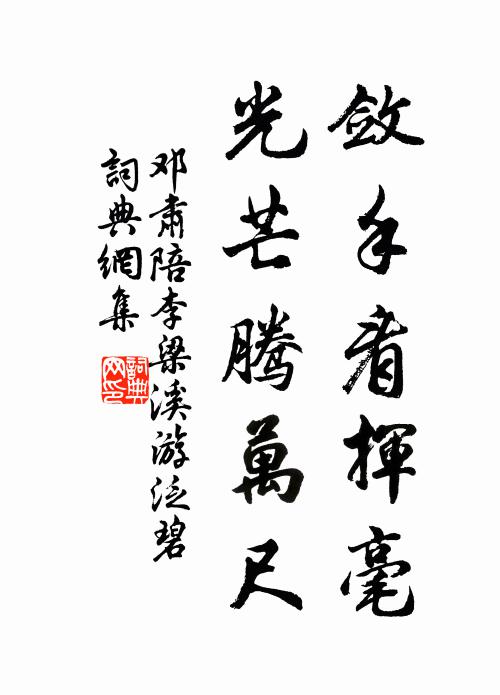 斂手看揮毫
光芒騰萬尺
邓肅陪李梁溪游泛碧
詞典網集
詞典網印